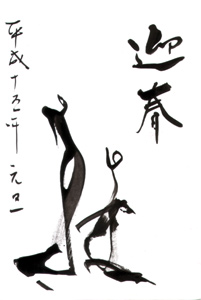 迎春
平成十五年 元旦